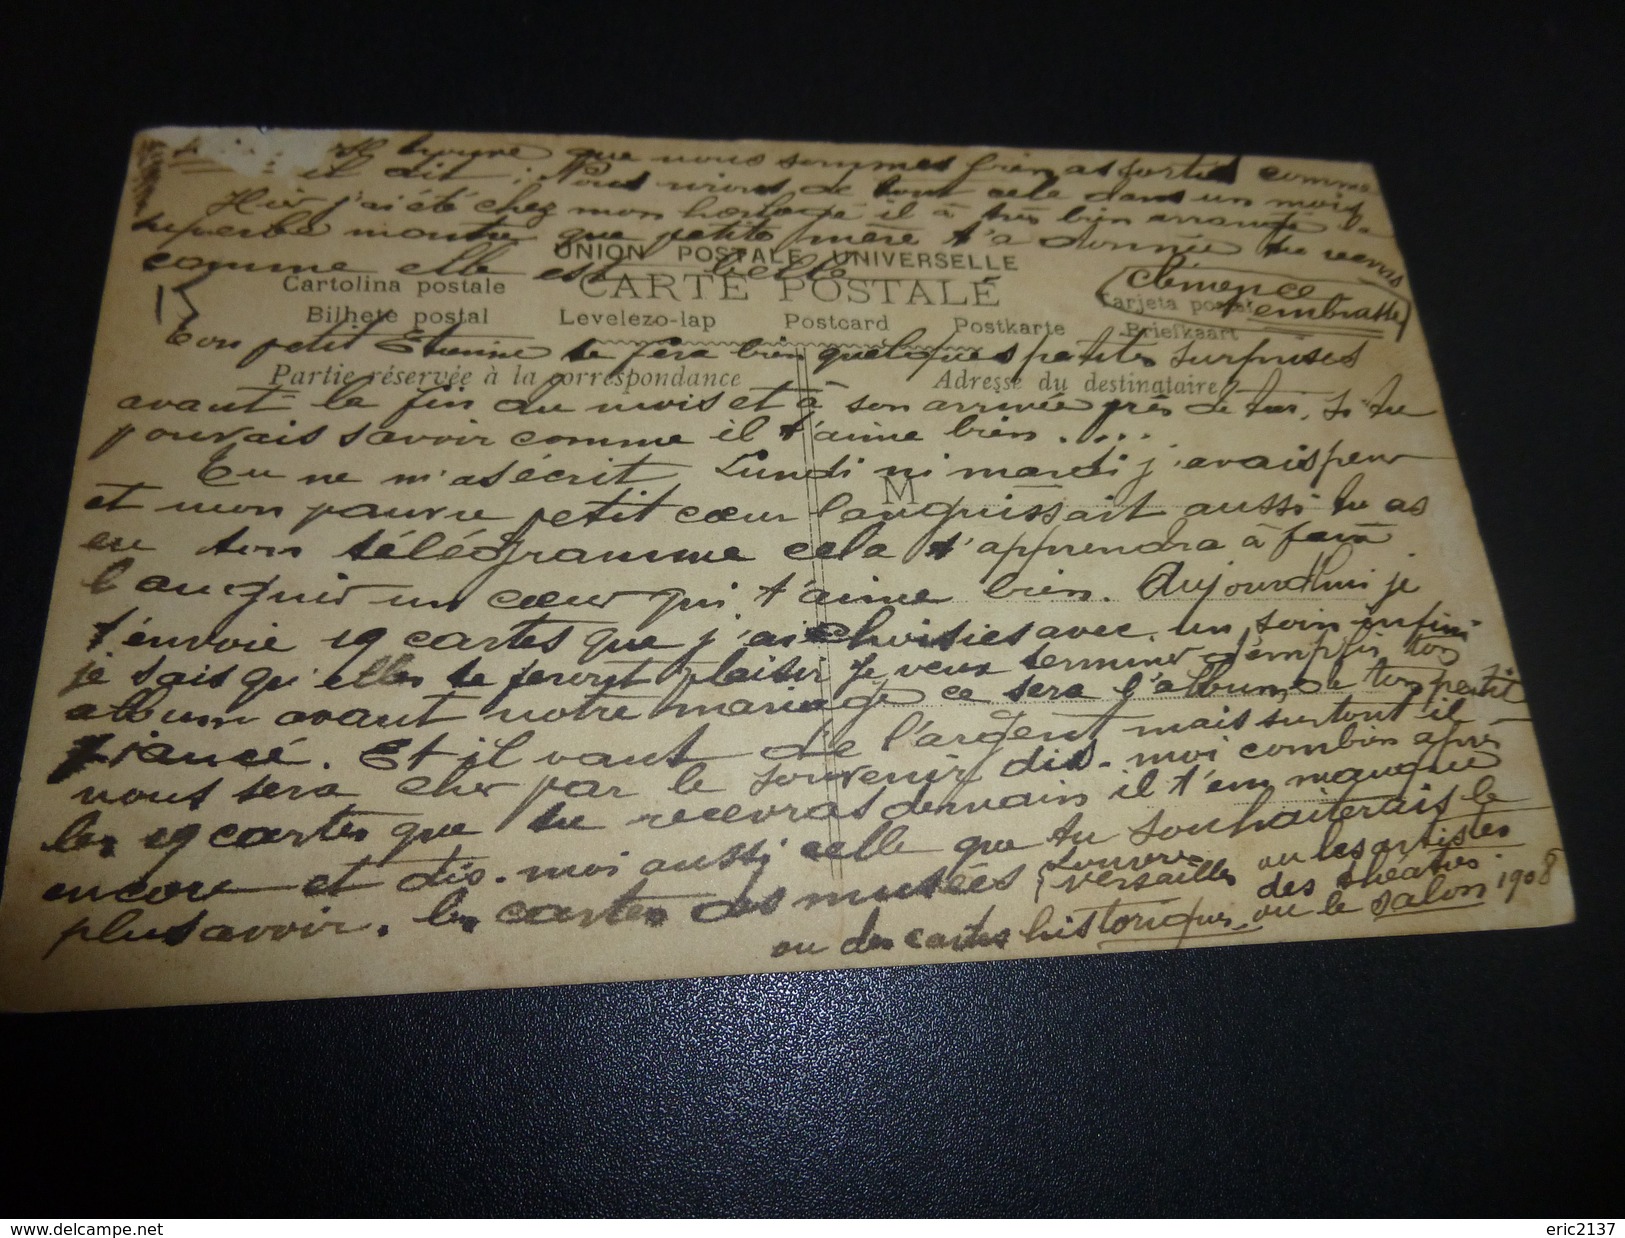 trouve que nous sommes bien assortis comme
il dit ; Nous rirons de tout cela dans un mois
Hier j'ai été chez mon horloger il à très bien arrangé la
superbe montre que petite mère t'a donnée tu verras
comme elle est belle
UNION POSTALE UNIVERSELLE
CARTE POSTALE
Cartolina postale
Clémence
t'embrasse
Tarjeta postal
Bilhete postal Levelezo-lap Postcard Postkarte Briefkaart
Ton petit Etienne te fera bien quelques petites surprises
Partie réservée à la correspondance Adresse du destinataire
avant la fin du mois et à son arrivée près de toi. Si tu
pouvais savoir comme il t'aime bien....
Tu ne m'as écrit Lundi ni mardi j'avais peur
M
et mon pauvre petit cœur languissait aussi tu as
eu ton télégramme cela t'apprendra à faire
languir un cœur qui t'aime bien. Aujourdhui je
t'envoie 19 cartes que j'ai choisies avec un soin infini
je sais qu'elles te feront plaisir je veux terminer d'emplir ton
album avant notre mariage ce sera l'album de ton petit
fiancé. Et il vaut de l'argent mais surtout il
nous sera cher par le souvenir dis-moi combien après
les 19 cartes que tu recevras demain il t'en manque
encore et dis-moi aussi celle que tu souhaiterais le
plus avoir. les cartes des musées Louvre Versailles ou les artistes des théâtres
ou des cartes historiques. ou le Salon 1908
eric2137